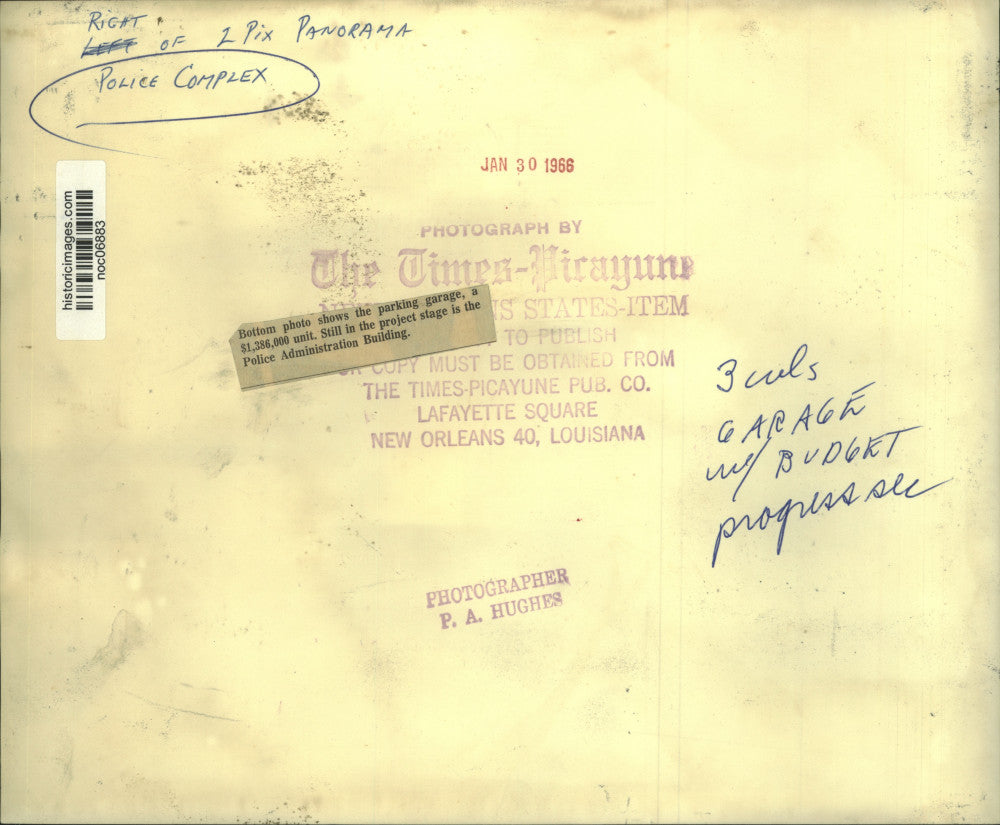 RIGHT
LEFT OF 2 PIX PANORAMA
POLICE COMPLEX
JAN 30 1966
historicimages.com
noc06883
PHOTOGRAPH BY
The Times-Picayune
NS STATES-ITEM
TO PUBLISH
OR COPY MUST BE OBTAINED FROM
THE TIMES-PICAYUNE PUB. CO.
LAFAYETTE SQUARE
NEW ORLEANS 40, LOUISIANA
Bottom photo shows the parking garage, a
$1,386,000 unit. Still in the project stage is the
Police Administration Building.
3 cols
GARAGE
w/ BUDGET
progress sec
PHOTOGRAPHER
P. A. HUGHES